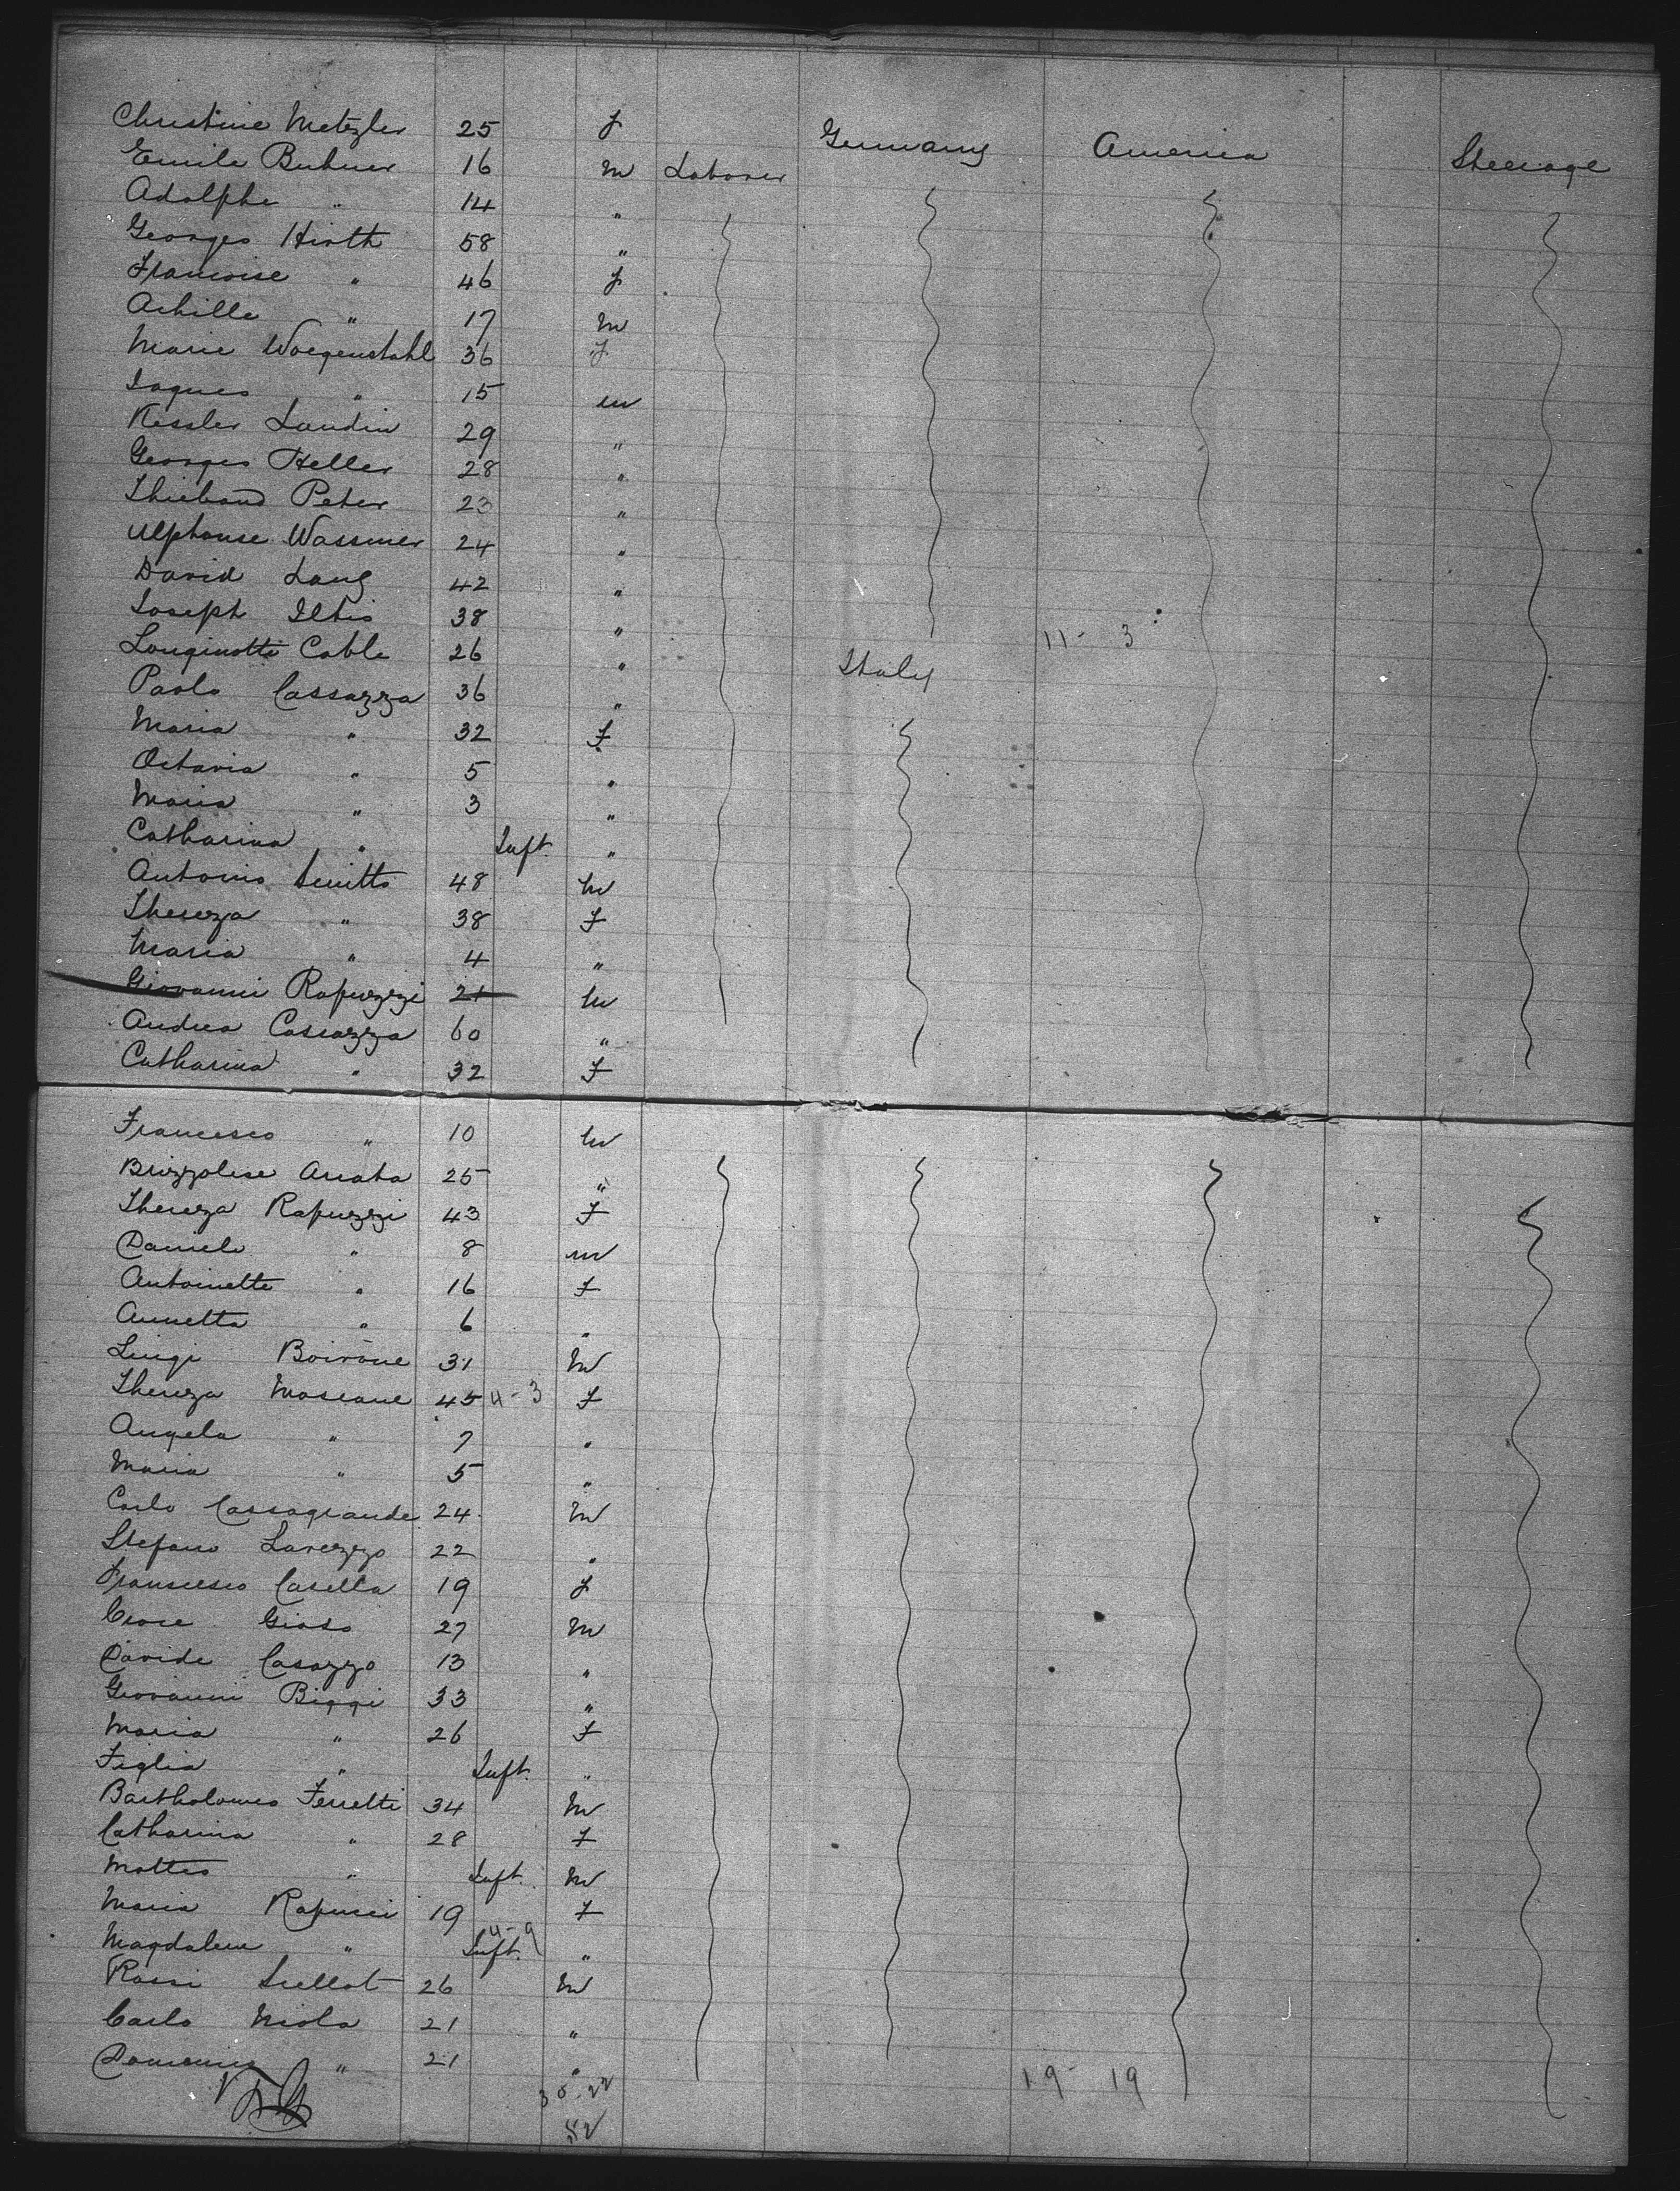 Christine Metzler 25 f Germany America Steerage
Emile Buhner 16 m Laborer
Adolphe " 14 "
Georges Hirth 58 "
Francoise " 46 f
Achille " 17 m
Marie Woegenstahl 36 f
Jaques " 15 m
Kessler Landin 29 "
Georges Heller 28 "
Thiebaud Peter 23 "
Alphonse Wassmer 24 "
David Lang 42 "
Joseph Iltis 38 " 11 - 3
Longinotti Cable 26 " Italy
Paolo Cassazza 36 "
Maria " 32 F
Octavia " 5 "
Maria " 3 "
Catharina " Inft. "
Antonio 48 m
Thereza " 38 F
Maria " 4 "
Giovanni Rapuzzi 21 m
Andrea Cassazza 60 "
Catharina " 32 F
Francesco " 10 m
Brizzolese Arrata 25 "
Thereza Rapuzzi 43 F
Daniele " 8 m
Antoinette " 16 F
Annetta " 6 "
Luigi Boirone 31 m
Thereza Mascane 45 4 - 3 F
Angela " 7 "
Maria " 5 "
Carlo Cassagrande 24 m
Stefano Lavezzo 22 "
Francesco Casella 19 f
Croce Gioso 27 m
Davide Casazzo 13 "
Giovanni Biggi 33 "
Maria " 26 F
Figlia " Inft. "
Bartholomeo Ferretti 34 m
Catharina " 28 F
Matteo " Inft. m
Maria Rapucci 19 F
Magdalene " Inft. 4-9 "
Rossi 26 m
Carlo Niola 21 "
Domenico " 21 "
30-22 19 - 19
52